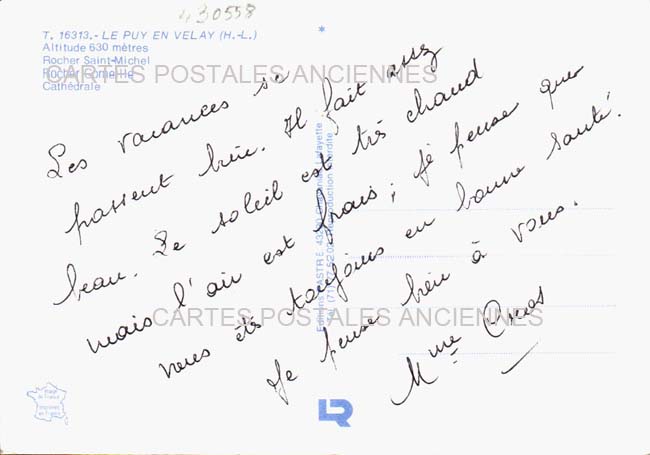 430558
T. 16313.- LE PUY EN VELAY (H.-L.)
Altitude 630 mètres
Rocher Saint-Michel
Rocher Corneille
Cathédrale
CARTES POSTALES ANCIENNES
Les vacances se
passent bien. Il fait assez
beau. Le soleil est très chaud
mais l'air est frais ; je pense que
vous êtes toujours en bonne santé.
Je pense bien à vous.
Mme
CARTES POSTALES ANCIENNES
Image
de France
Imprimée
en France
LR